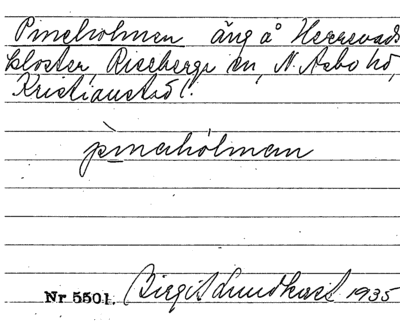 Pineholmen äng å Herrevads
kloster, Riseberga sn, N. Åsbo hd,
Kristianst. l.
pìnəhòlmən
Nr 5501. Birgit Lundkvist 1935